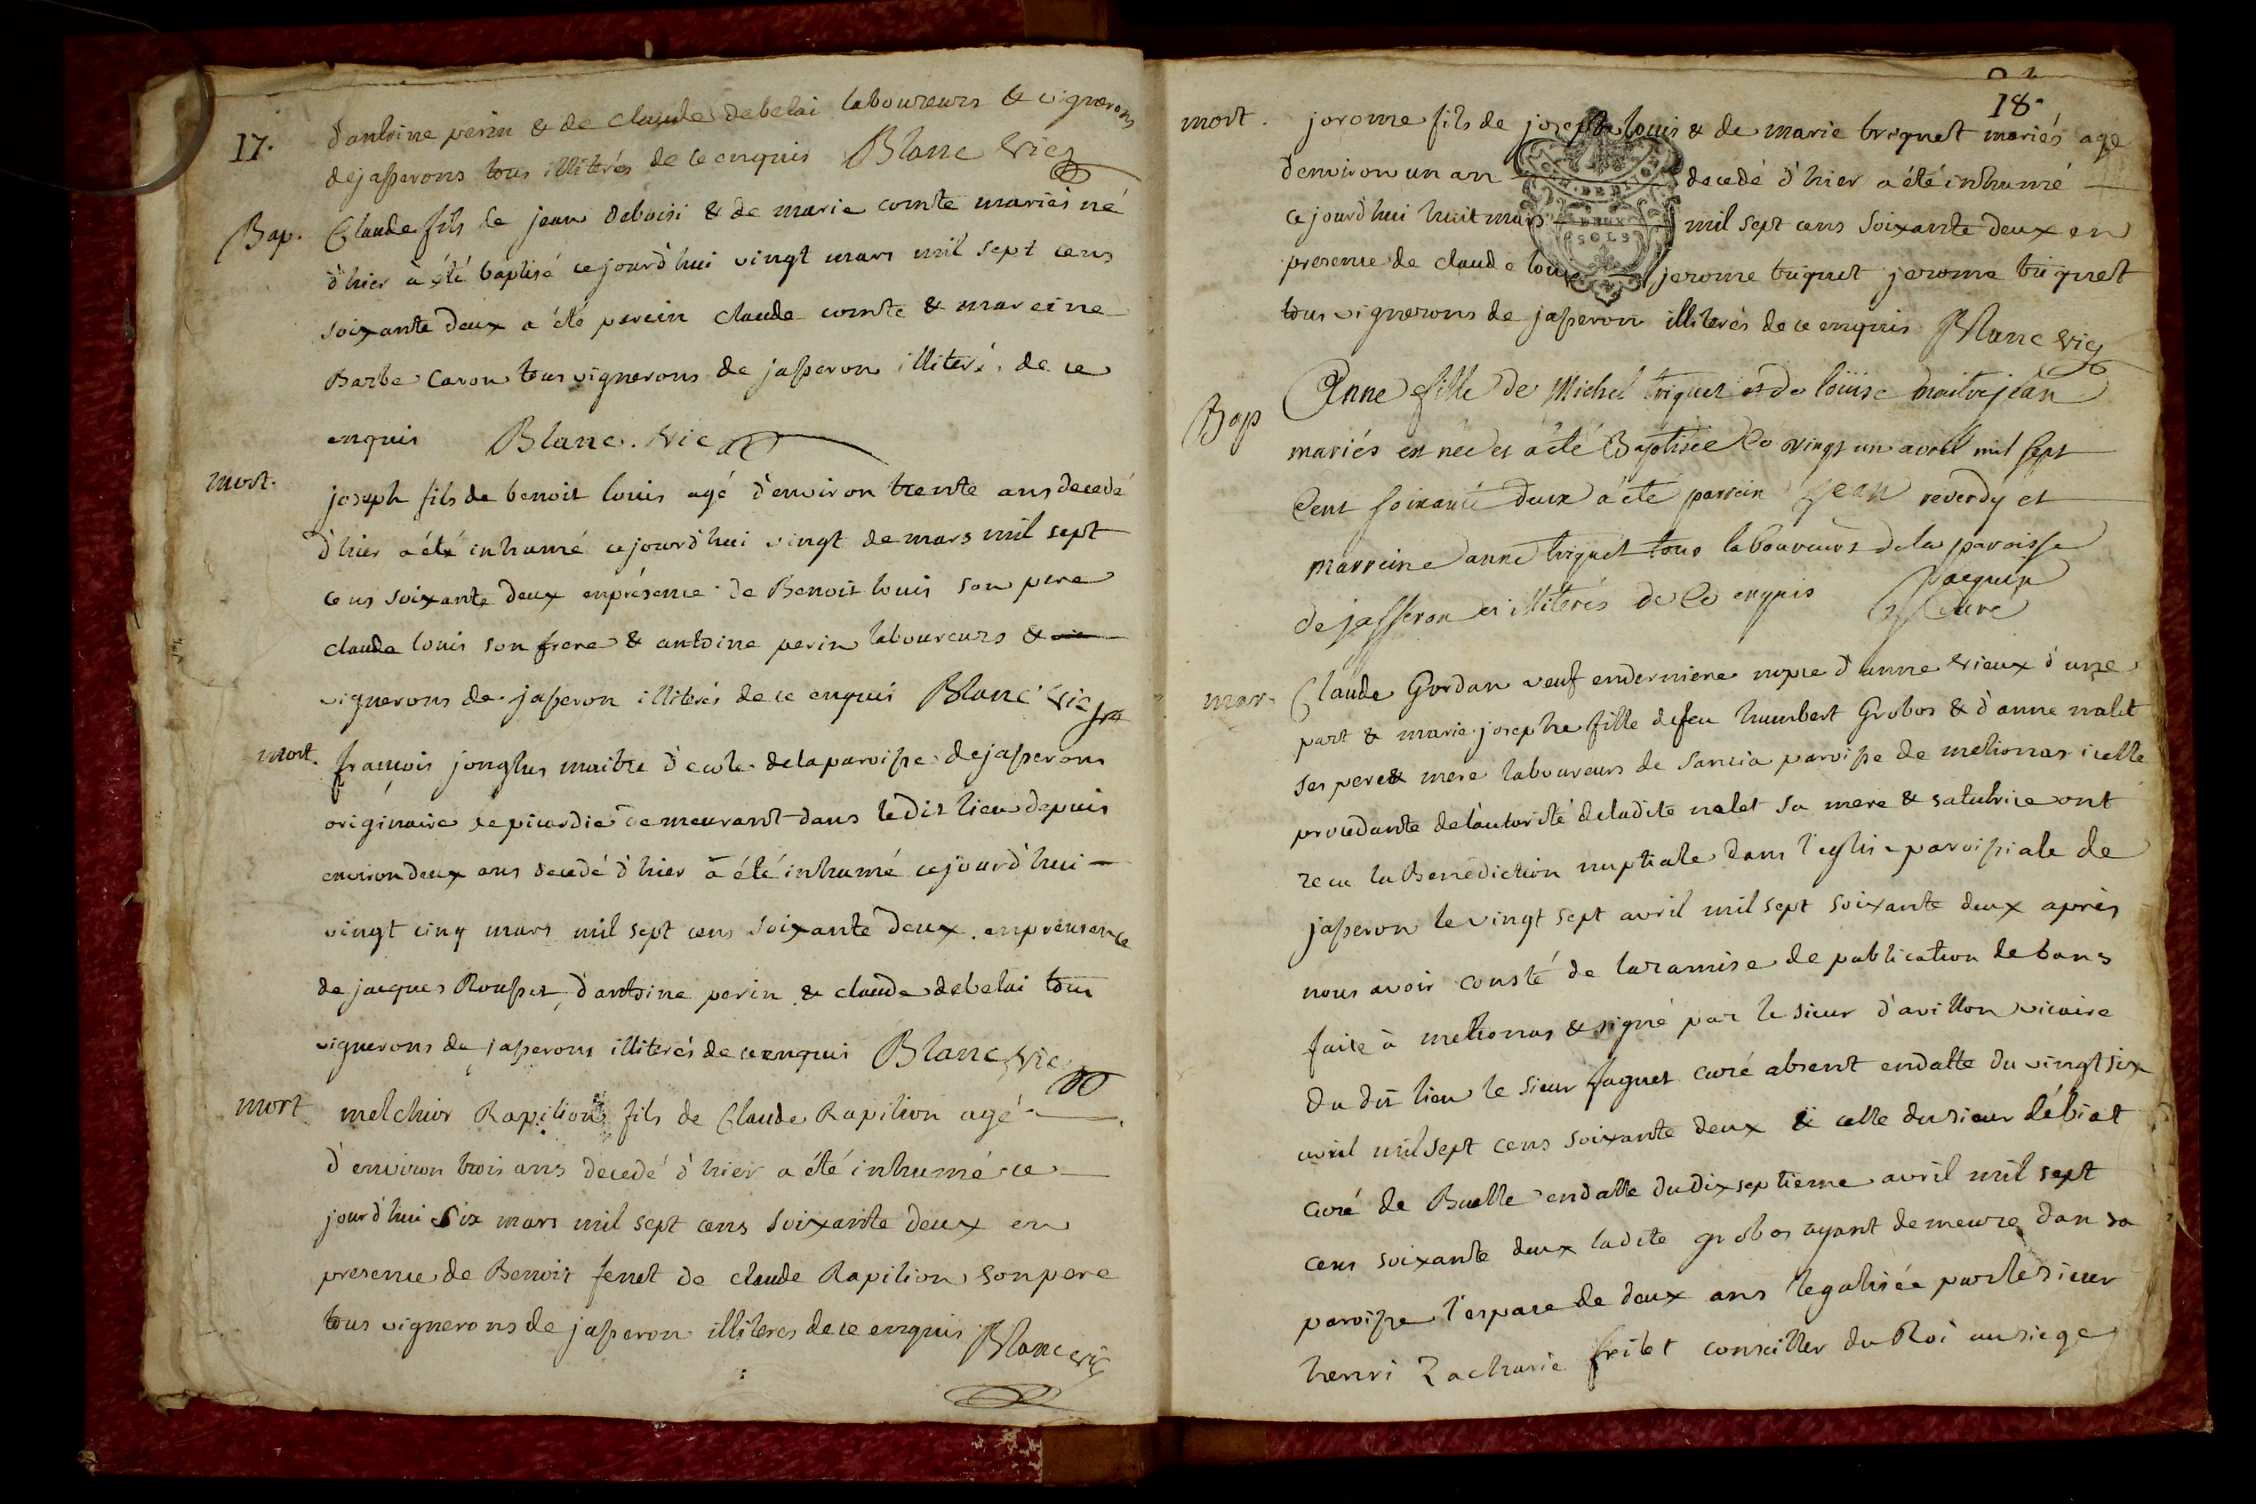 17.
d'antoine perin & de claude debelai laboureurs & vignerons
de jasserons tous illiterés de ce enquis Blanc vic
Bap. Claude fils de jean deboisi & de marie comte mariés né
d'hier a été baptisé cejourd'hui vingt mars mil sept cens
soixante deux a été parein claude comte & mareine
Barbe Caron tous vignerons de jasseron illiteré. de ce
enquis Blanc. vic
mort. joseph fils de benoit louis agé d'environ trente ans decedé
d'hier a été inhumé cejourd'hui vingt de mars mil sept
cens soixante deux en présence de Benoit louis son pere
claude louis son frere & antoine perin laboureurs &
vignerons de jasseron illiterés de ce enquis Blanc vic
mort. françois jonglus maitre d'ecole de la paroisse de jasserons
originaire de picardie demeurant dans ledit lieu depuis
environ deux ans decedé d'hier a été inhumé cejourd'hui
vingt cinq mars mil sept cens soixante deux en presence
de jacques Rousset, d'antoine perin & claude debelai tous
vignerons de jasserons illiterés de ce enquis Blanc vic.
mort melchior Rapilion fils de Claude Rapilion agé
d'environ trois ans decedé d'hier a été inhumé ce
jourd'hui six mars mil sept cens soixante deux en
presence de Benoit fenet de claude Rapilion son pere
tous vignerons de jasseron illiteres de ce enquis Blanc vic
18.
mort. jorome fils de joseph louis & de marie triquet mariés agé
d'environ un an decedé d'hier a été inhumé
ce jourd'hui huit mars mil sept cens soixante deux en
presence de claude louis jerome triquet jerome triquet
tous vignerons de jasseron illiterés de ce enquis Blanc vic
DEUX
SOLS
Bap Anne fille de Michel triquet et de loüise maitrejean
mariés est née et a été Baptisée le vingt un avril mil sept
Cent soixante deux a été parrein jean reverdy et
marreine anne triquet tous laboureurs de la paroisse
de jasseron et illiterés de Ce enquis Jacquin
Curé
mar. Claude Gordan veuf en derniere nopce d'anne vieux d'une
part & marie josephe fille de feu humbert Grobos & d'anne nalet
ses pere & mere laboureurs de Sancia paroisse de melionas icelle
procedante de l'autorité de ladite nalet sa mere & sa tutrice ont
recu la Benediction nuptiale dans l'eglise paroissiale de
jasseron le vingt sept avril mil sept soixante deux après
nous avoir consté de la ramise de publication de bans
faite à melionas & signé par le sieur d'avillon vicaire
du dit lieu le sieur faguet curé absent en datte du vingt six
avril mil sept cens soixante deux & celle du sieur débiat
curé de Buelle en datte du dix septieme avril mil sept
cens soixante deux ladite grobos ayant demeure dan sa
paroisse l'espace de deux ans legalisée par le sieur
henri Zacharie frilet conseiller du Roi au siege